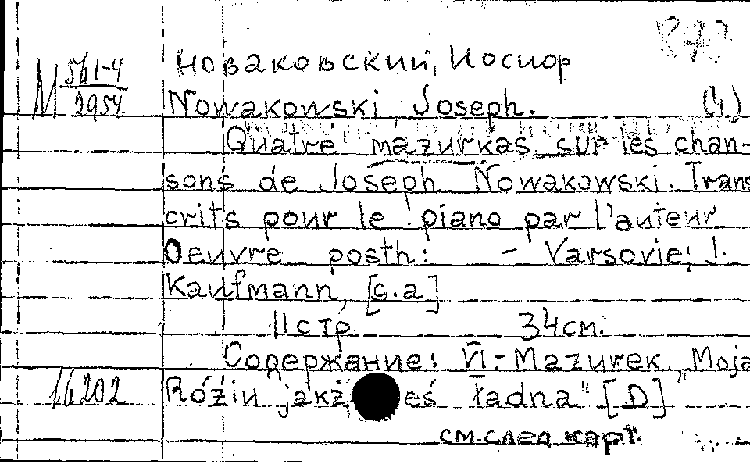 Новаковский, Иосиф
М 561-4/2954
Nowakowski, Joseph. (4)
Quatre mazurkas sur les chan-
sons de Joseph Nowakowski. Trans
crits pour le piano par l'auteur
Oeuvre posth: - Varsovie; J.
Kaufmann, [с.а]
11 стр 34 см.
Содержание: VI - Mazurek „Moja
16202 Róziu jakż eś ładna" [D]
см. след карт.